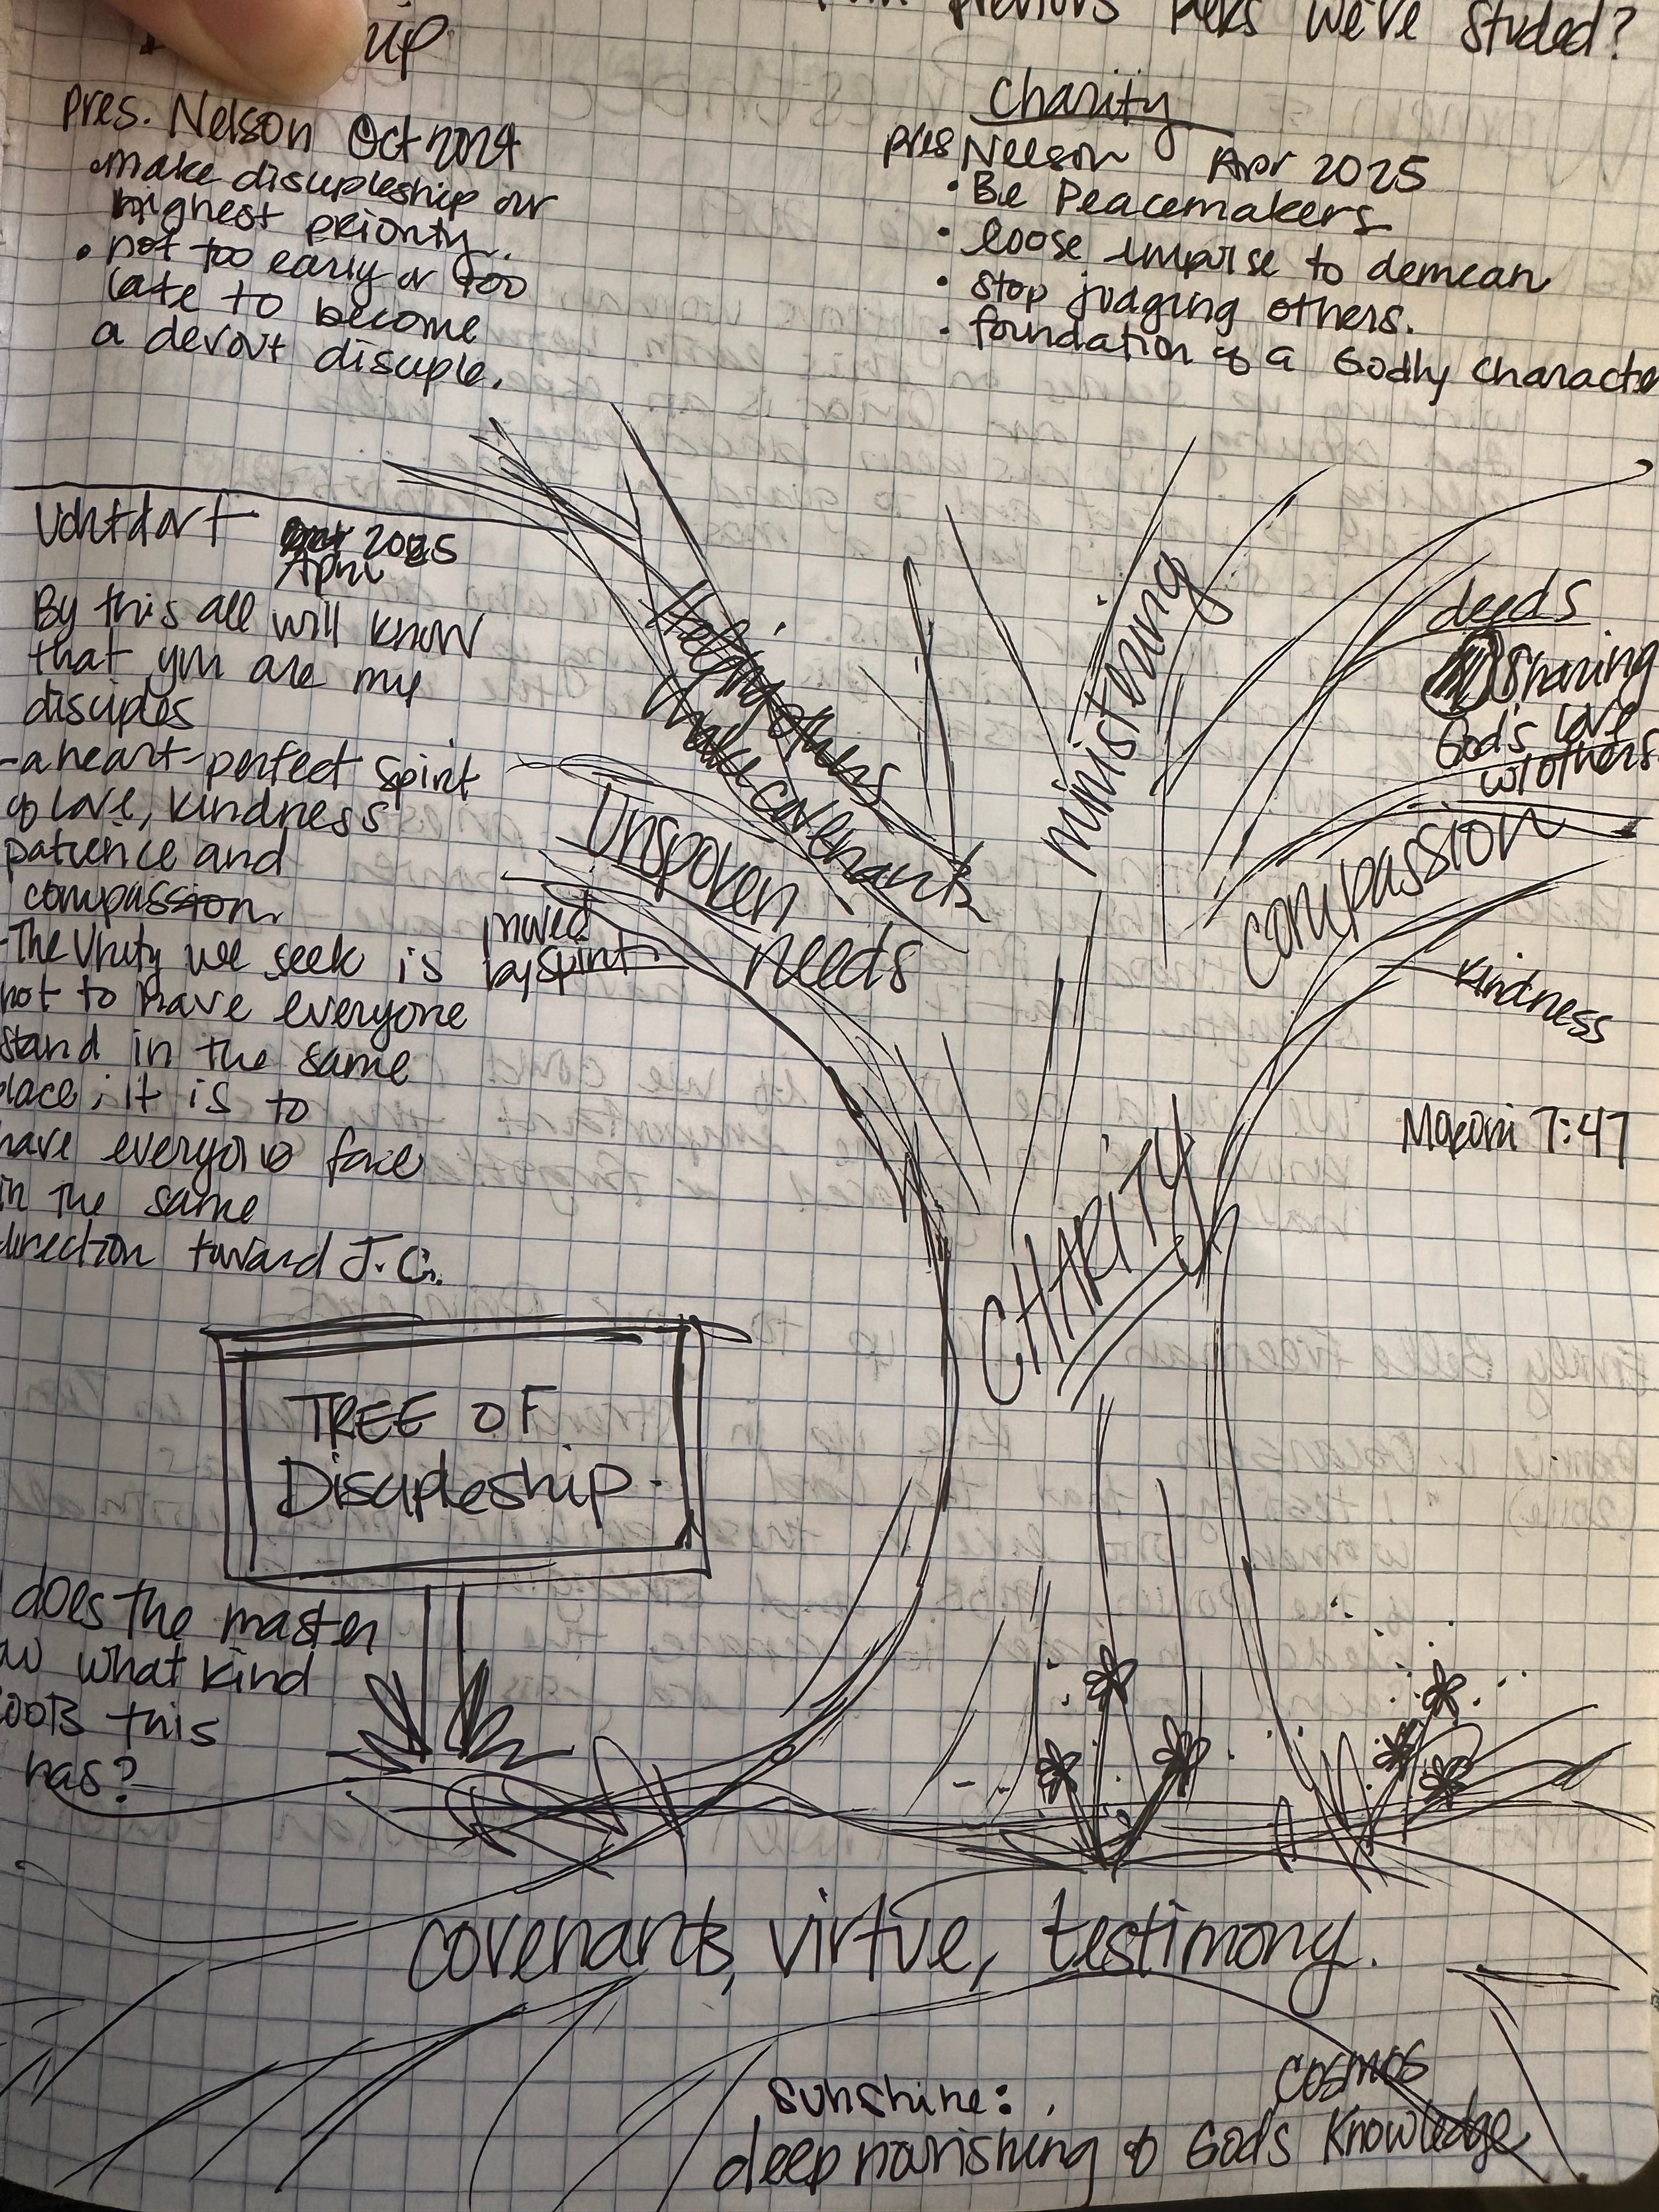 previous talks we've studed?
Pres. Nelson Oct 2024
• make discupleship our
highest priority.
• not too early or too
late to become
a devout discuple.
Charity
Pres Nelson Apr 2025
• Be Peacemakers
• loose impulse to demean
• stop judging others.
• foundation of a Godly Character
Uchtdorf 2025
April
By this all will know
that you are my
disciples
- a heart-perfect spirit
of love, kindness
patience and
compassion
- The Unity we seek is
not to have everyone
stand in the same
place; it is to
have everyone face
in the same
direction toward J.C.
Helping others
make covenants
Unspoken
needs
moved
by spirit
ministering
deeds
Sharing
God's love
w/others
compassion
kindness
Moroni 7:47
CHARITY
TREE OF
Discupleship.
does the master
what kind
this
has?
covenants, virtue, testimony.
sunshine:
cosmos
deep nourishing of God's Knowledge